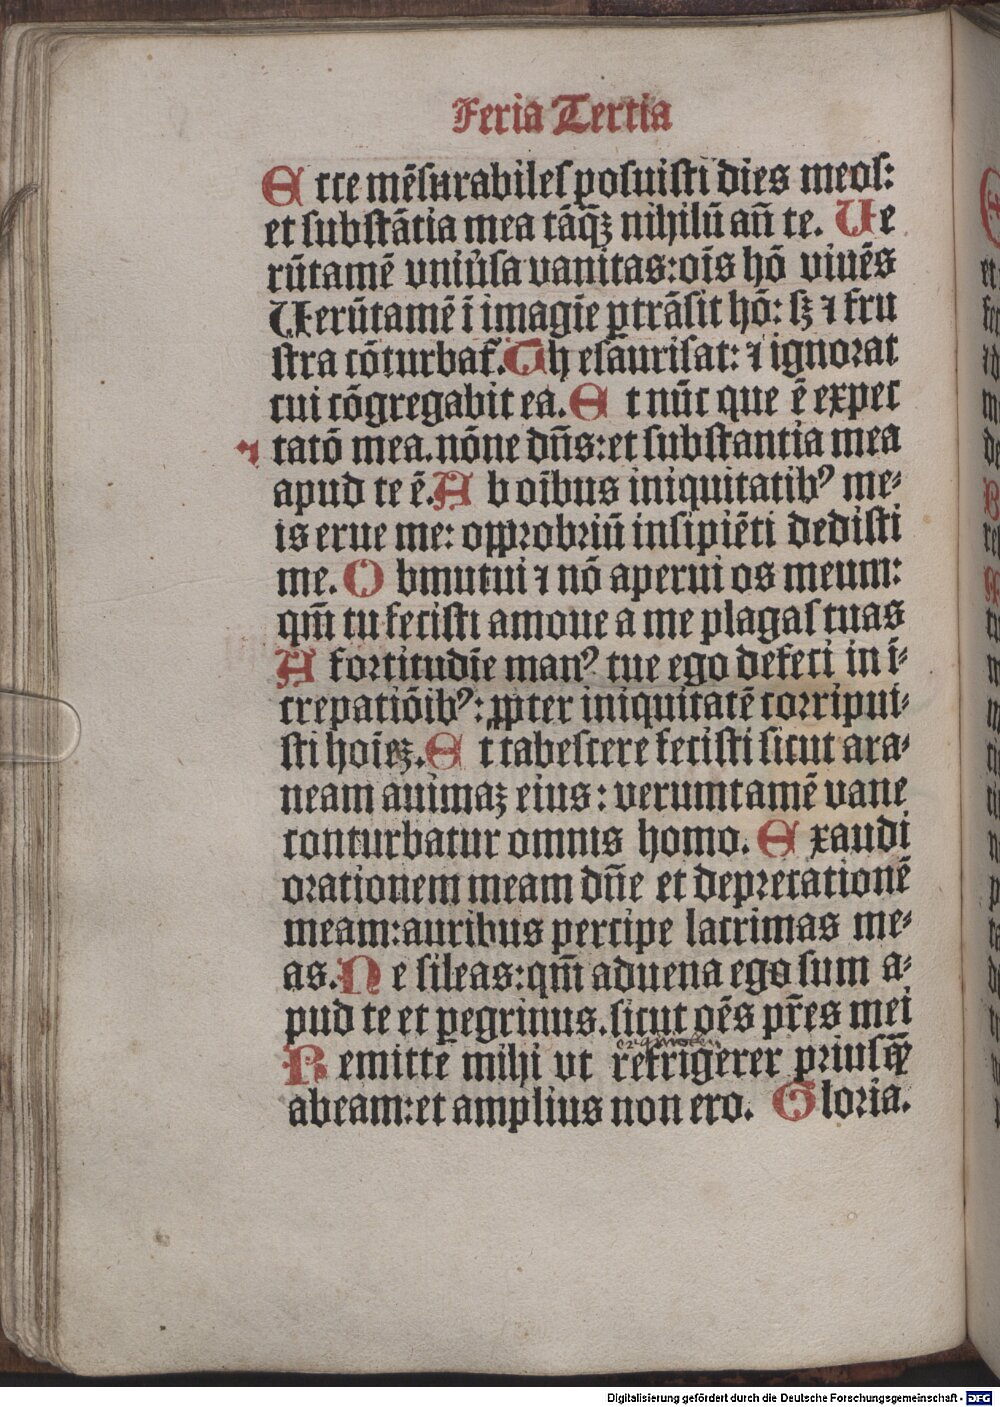 Feria Tertia
E cce mēsurabiles posuisti dies meos:
et substātia mea tāq̄ꝫ nihilū añ te. Ue
rūtamē vniũsa vanitas:oīs hō viuēs
Uerūtamē ī imagīe ꝑtrāsit hō: sꝫ ⁊ fru
stra cōturbat̄. Th esaurisat: ⁊ ignorat
cui cōgregabit ea. E t nūc que ē expec
⁊ tatō mea. nōne dn̄s: et substantia mea
apud te ē. A b oībus iniquitatibꝰ me⸗
is erue me: opprobriū insipiēti dedisti
me. O bmutui ⁊ nō aperui os meum:
qm̄ tu fecisti amoue a me plagas tuas
A fortitudīe manꝰ tue ego defeci in ī⸗
crepatiōibꝰ: ꝓpter iniquitatē corripui⸗
sti hoīeꝫ. E t tabescere fecisti sicut ara⸗
neam auimaꝫ eius: verumtamē vane
conturbatur omnis homo. E xaudi
orationem meam dn̄e et deprecationē
meam: auribus percipe lacrimas me⸗
as. N e sileas: qm̄ aduena ego sum a⸗
pud te et ꝑegrinus. sicut oēs pr̄es mei
R emitte mihi vt refrigerer priusq̄ꝫ
abeam: et amplius non ero. Gloria.
Digitalisierung gefördert durch die Deutsche Forschungsgemeinschaft - DFG